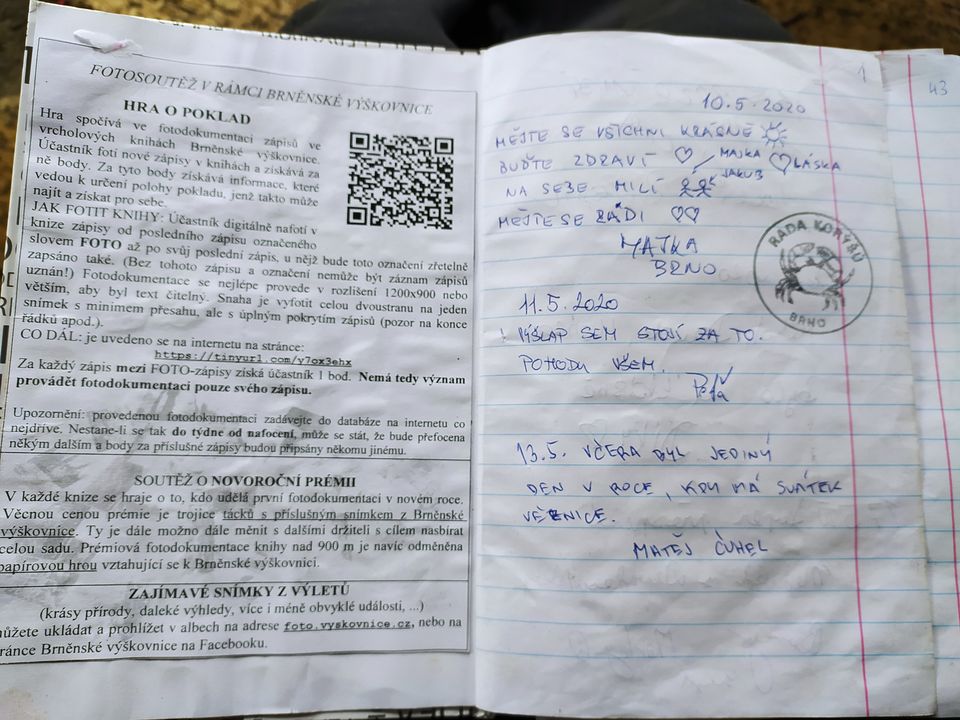 FOTOSOUTĚŽ V RÁMCI BRNĚNSKÉ VÝŠKOVNICE
HRA O POKLAD
Hra spočívá ve fotodokumentaci zápisů ve
vrcholových knihách Brněnské výškovnice.
Účastník fotí nové zápisy v knihách a získává za
ně body. Za tyto body získává informace, které
vedou k určení polohy pokladu, jenž takto může
najít a získat pro sebe.
JAK FOTIT KNIHY: Účastník digitálně nafotí v
knize zápisy od posledního zápisu označeného
slovem FOTO až po svůj poslední zápis, u nějž bude toto označení zřetelně
zapsáno také. (Bez tohoto zápisu a označení nemůže být záznam zápisů
uznán!) Fotodokumentace se nejlépe provede v rozlišení 1200x900 nebo
větším, aby byl text čitelný. Snaha je vyfotit celou dvoustranu na jeden
snímek s minimem přesahu, ale s úplným pokrytím zápisů (pozor na konce
řádků apod.).
CO DÁL: je uvedeno se na internetu na stránce:
https://tinyurl.com/y7ox3ehx
Za každý zápis mezi FOTO-zápisy získá účastník 1 bod. Nemá tedy význam
provádět fotodokumentaci pouze svého zápisu.
Upozornění: provedenou fotodokumentaci zadávejte do databáze na internetu co
nejdříve. Nestane-li se tak do týdne od nafocení, může se stát, že bude přefocena
někým dalším a body za příslušné zápisy budou připsány někomu jinému.
SOUTĚŽ O NOVOROČNÍ PRÉMII
V každé knize se hraje o to, kdo udělá první fotodokumentaci v novém roce.
Věcnou cenou prémie je trojice tácků s příslušným snímkem z Brněnské
výškovnice. Ty je dále možno dále měnit s dalšími držiteli s cílem nasbírat
celou sadu. Prémiová fotodokumentace knihy nad 900 m je navíc odměněna
papírovou hrou vztahující se k Brněnské výškovnici.
ZAJÍMAVÉ SNÍMKY Z VÝLETŮ
(krásy přírody, daleké výhledy, více i méně obvyklé události, ...)
můžete ukládat a prohlížet v albech na adrese foto.vyskovnice.cz, nebo na
stránce Brněnské výškovnice na Facebooku.
1
10.5.2020
MĚJTE SE VŠICHNI KRÁSNĚ
BUĎTE ZDRAVÍ MAJKA LÁSKA
NA SEBE MILÍ JAKUB
MĚJTE SE RÁDI
MAJKA
BRNO
RADA KORÝŠŮ
BRNO
11.5.2020
VÝŠLAP SEM STOJÍ ZA TO.
POHODU VŠEM.
Péťa
13.5. VČERA BYL JEDINÝ
DEN V ROCE, KDY MÁ SVÁTEK
VĚŽNICE.
MATĚJ ČUHEL
43